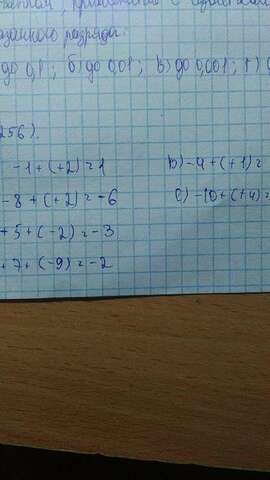 указанного разряды:
до 0,1; б) до 0,01; в) до 0,001; г)
256).
-1+(+2)=1
-8+(+2)=-6
+5+(-2)=-3
+7+(-9)=-2
b)-4+(+1)=
c)-10+(+4)=